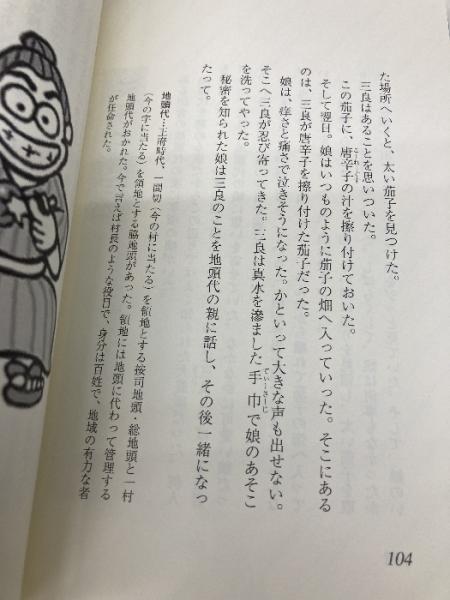 た場所へいくと、太い茄子を見つけた。
三良はあることを思いついた。
この茄子に、唐辛子の汁を擦り付けておいた。
そして翌日。娘はいつものように茄子の畑へ入っていった。そこにある
のは、三良が唐辛子を擦り付けた茄子だった。
娘は、痒さと痛さで泣きそうになった。かといって大きな声も出せない。
そこへ三良が忍び寄ってきた。三良は真水を滲ました手巾で娘のあそこ
を洗ってやった。
秘密を知られた娘は三良のことを地頭代の親に話し、その後一緒になっ
たって。
地頭代…王府時代、一間切(今の村に当たる)を領地とする按司地頭・総地頭と一村
(今の字に当たる)を領地とする脇地頭があった。領地には地頭に代わって管理する
地頭代がおかれた。今で言えば村長のような役目で、身分は百姓で、地域の有力な者
が任命された。
104